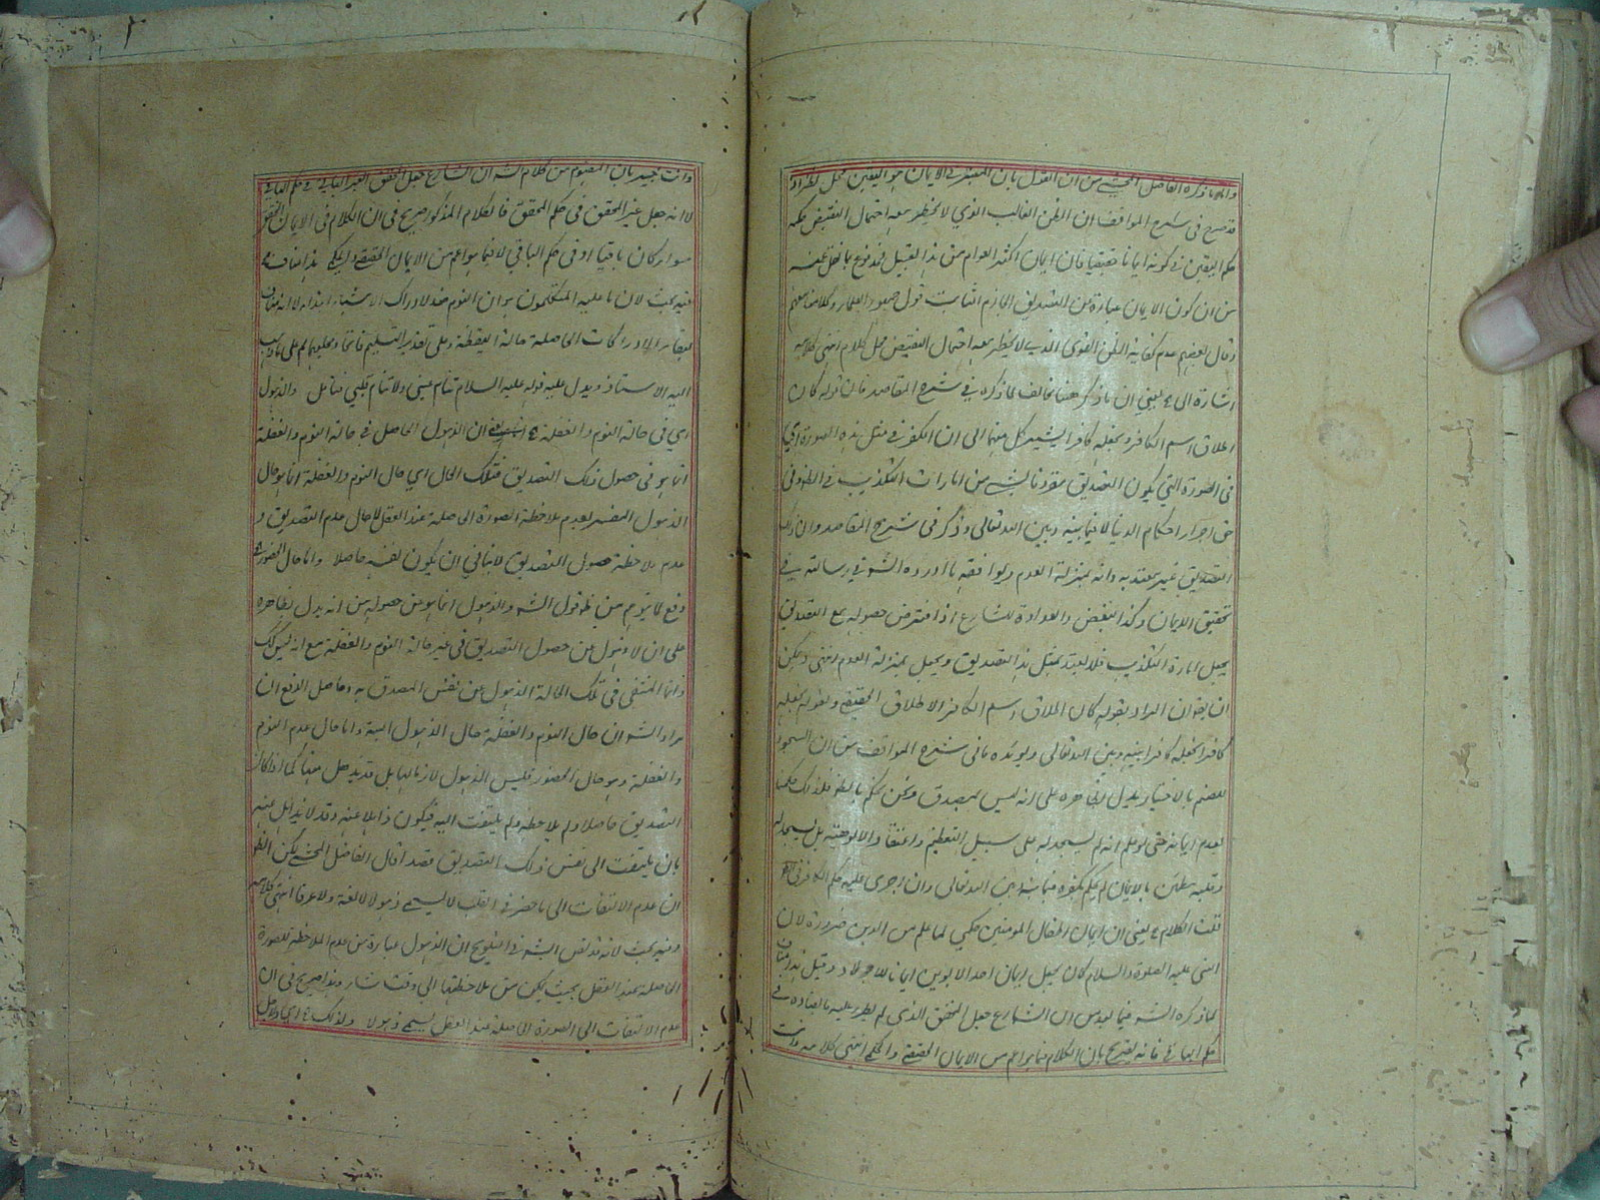 واما ما ذكره الفاضل المحشي من ان القول بان المعتبر في الايمان هو اليقين محل نظر اذ
قد صرح في شرح المواقف ان الظن الغالب الذي لا يخطر معه احتمال النقيض حكمه
حكم اليقين في كونه ايمانا حقيقيا فان ايمان اكثر العوام من هذا القبيل فمدفوع بما نقل عنه
من ان كون الايمان عبارة عن التصديق الجازم الثابت قول جمهور العلماء وكلامنا معهم
وقال بعضهم عدم كفاية الظن القوي الذي لا يخطر معه احتمال النقيض محل كلام انتهى كلامه
اشارة الى يعني ان ما ذكر هنا مخالف لما ذكره في شرح المقاصد فان قوله كان
اطلاق اسم الكافر وبجعله كافرا يشير كل منهما الى ان الكفر في مثل هذه الصورة اي
في الصورة التي يكون التصديق مقرونا بشيء من امارات التكذيب في الظاهر في
حق اجراء احكام الدنيا لا فيما بينه وبين الله تعالى وذكر في شرح المقاصد وان ذلك
التصديق غير معتد به وانه بمنزلة العدم ويوافقه ما اورده الشه في رسالته في
تحقيق الايمان وكذا البغض والعداوة للشارع اذا فرض حصوله مع التصديق
يجعل امارة التكذيب فلا يعتد بمثل هذا التصديق ويجعل بمنزلة العدم انتهى ويمكن
ان يقه ان المراد بقوله كان اطلاق اسم الكافر الاطلاق الحقيقي وبقوله نجعله
كافرا نجعله كافرا بينه وبين الله تعالى ويؤيده ما في شرح المواقف من ان السجود
للصنم بالاختيار يدل بظاهره على انه ليس بمصدق ونحن نحكم بالظه فلذلك حكمنا
بعدم ايمانه حتى لو علم انه لم يسجد له على سبيل التعظيم واعتقاد الالوهية بل سجد له
وقلبه مطمئن بالايمان لم يحكم بكفره فيما بينه وبين الله تعالى وان اجرى عليه حكم الكافر في الظه
قلت الكلام يعني ان ايمان اطفال المؤمنين حكمي لما علم من الدين ضرورة لان
النبي عليه الصلوة والسلام كان يجعل ايمان احد الابوين ايمانا للاولاد وقيل هذا مناف
لما ذكره الشه فيما بعد من ان الشارع جعل المحقق الذي لم يطرء عليه ما يضاده في
حكم الباقي فانه تصريح بان الكلام فيما هو اعم من الايمان الحقيقي والحكمي انتهى كلامه وانت
وانت خبير بان المفهوم من كلام الشه ان الشارع جعل المحقق الغير الباقي في حكم الباقي
لا انه جعل غير المحقق في حكم المحقق فالكلام المذكور صريح في ان الكلام في الايمان المحقق
سواء كان باقيا او في حكم الباقي لا فيما هو اعم من الايمان الحقيقي والحكمي هذا مناف
فيه بحث لان ما عليه المتكلمون هو ان النوم ضد لادراك الاشياء ابتداء لا انه مناف
لبقاء الادراكات الحاصلة حالة اليقظة وعلى تقدير التسليم
اليه الاستاذ ويدل عليه قوله عليه السلام تنام عيني ولا تنام قلبي فتامل والذهول
اي في حالة النوم والغفلة ان الذهول الحاصل في حالة النوم والغفلة
انما هو في حصول ذلك التصديق فتلك الحال اي حال النوم والغفلة انما هو حال
الذهول المفسر بعدم ملاحظة الصورة الحاصلة عند العقل لا حال عدم التصديق و
عدم ملاحظة حصول التصديق لا ينافي ان يكون نفسه حاصلا واما حال الحضور
دفع لما يتوهم من ظه قول الشه والذهول انما هو عن حصوله من انه يدل بظاهره
على ان لا ذهول عن حصول التصديق في غير حالة النوم والغفلة مع انه ليس كك
وانما المنتفى في تلك الحالة الذهول عن نفس المصدق به وحاصل الدفع ان
مراد الشه ان حال النوم والغفلة حال الذهول البتة واما حال عدم النوم
والغفلة وهو حال الحضور فليس الذهول لازما لها بل قد يذهل فيها كما اذا كان
التصديق حاصلا ولم يلاحظه ولم يلتفت اليه فيكون ذاهلا عنه وقد لا يذهل عنه
بان يلتفت الى نفس ذلك التصديق قصدا قال الفاضل المحشي لكن الظه
ان عدم الالتفات الى ما حضر في القلب لا يسمى ذهولا لا لغة ولا عرفا انتهى كلامه
وفيه بحث لانه قد نص الشه في التلويح ان الذهول عبارة عن عدم الملاحظة للصورة
الحاصلة عند العقل بحيث يتمكن من ملاحظتها اي وقت شاء وهذا صريح في ان
عدم الالتفات الى الصورة الحاصلة عند العقل يسمى ذهولا ولذلك اي ولاجل